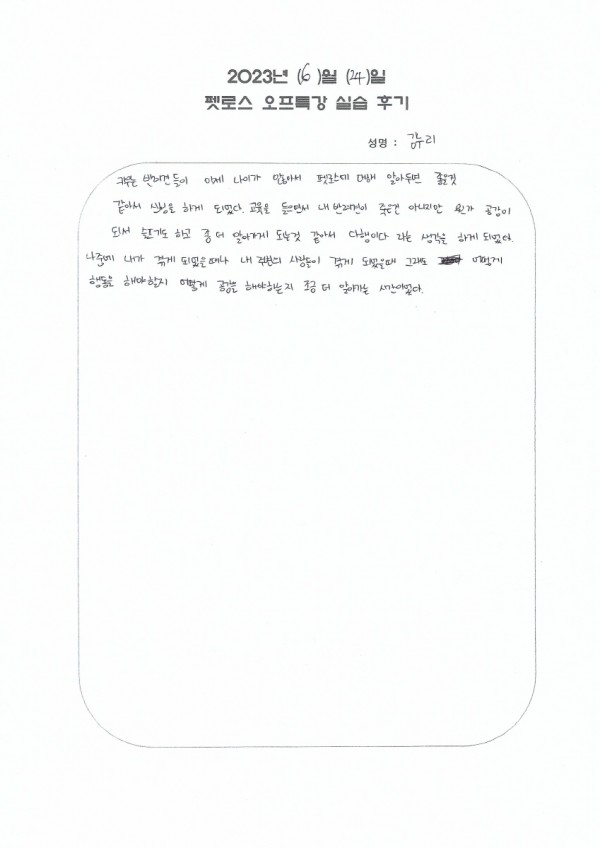 2023년 (6)월 (24)일
펫로스 오프특강 실습 후기
성명 : 강누리
키우는 반려견들이 이제 나이가 많아서 펫로스에 대해 알아두면 좋을것
같아서 신청을 하게 되었다. 교육을 들으면서 내 반려견이 죽은건 아니지만 뭔가 공감이
되서 슬프기도 하고 좀 더 알아가게 되는것 같아서 다행이다 라는 생각을 하게 되었다.
나중에 내가 겪게 되었을때나 내 주변의 사람들이 겪게 되었을때 그래도 어떻게
행동을 해야할지 어떻게 공감을 해야하는지 조금 더 알아가는 시간이었다.